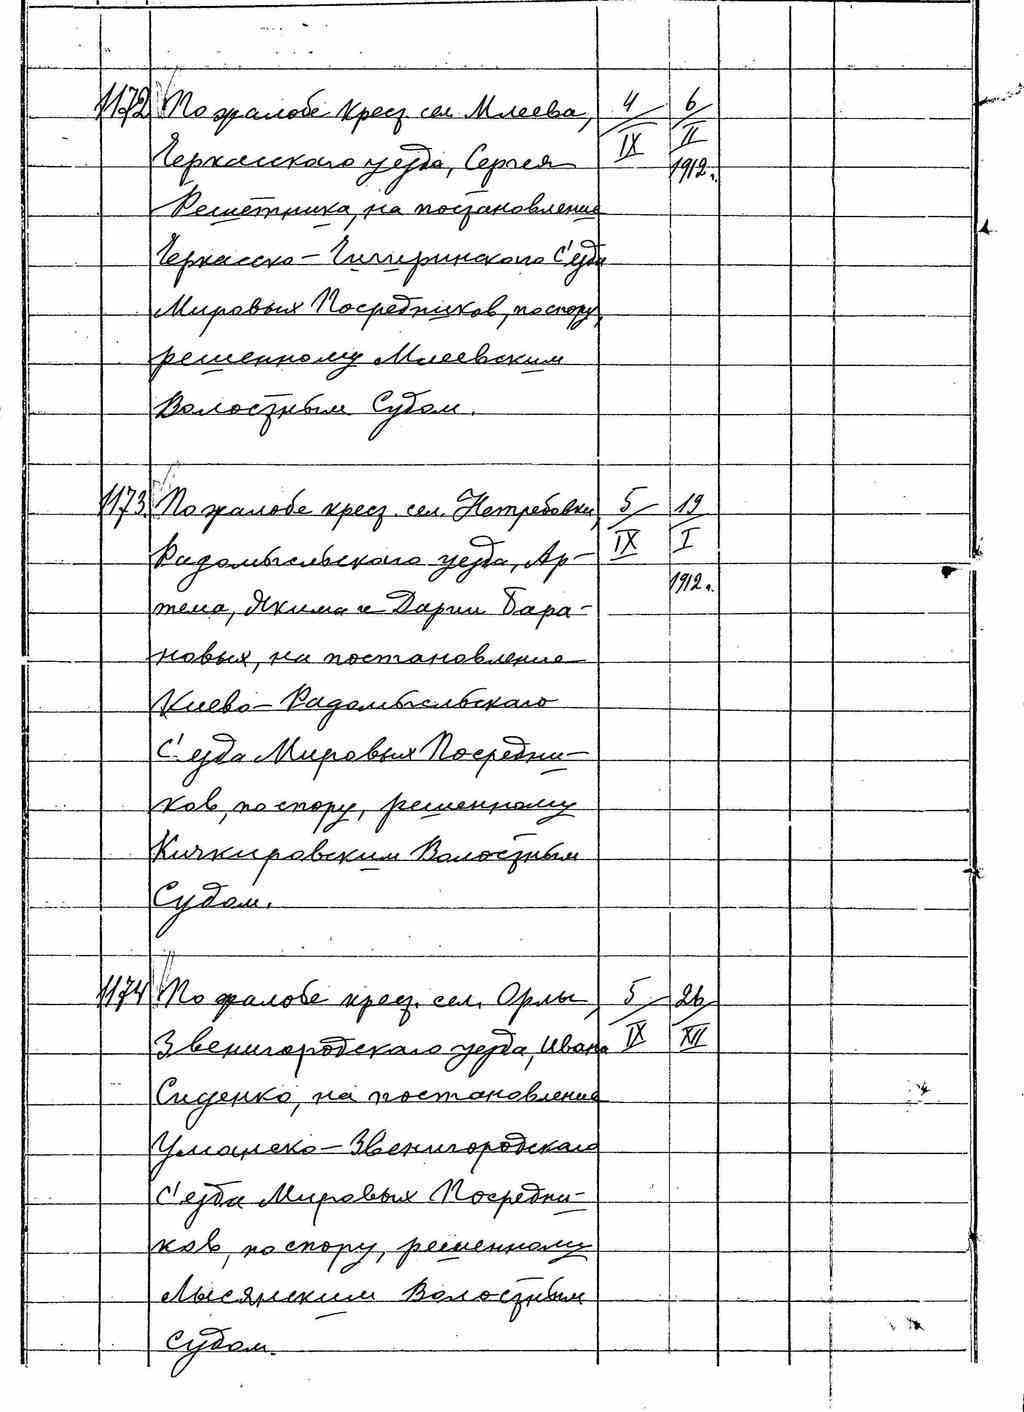 1172 По жалобе крест. сел. Млеева, 4/IX 6/II 1912 г.
Черкасского уезда, Сергея
Решетника, на постановление
Черкасско-Чигиринского С'езда
Мировых Посредников, по спору,
решенному Млеевским
Волостным Судом.
1173. По жалобе крест. сел. Нетребовки, 5/IX 19/I 1912 г.
Радомысльского уезда, Ар-
тема, Якима и Дарии Бара-
новых, на постановление
Киево-Радомысльскаго
С'езда Мировых Посредни-
ков, по спору, решенному
Кичкировским Волостным
Судом.
1174 По жалобе крест. сел. Орлы, 5/IX 26/XII
Звенигородскаго уезда, Ивана
Сиденко, на постановление
Уманско-Звенигородскаго
С'езда Мировых Посредни-
ков, по спору, решенному
Лысянским Волостным
Судом.